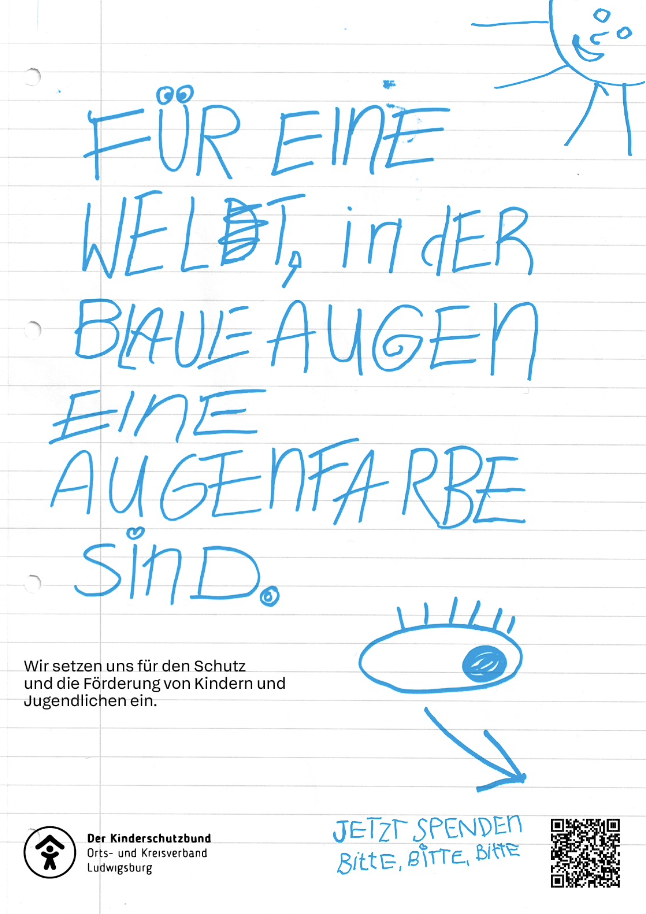 FÜR EINE
WELT, in dER
BLAUE AUGEN
EINE
AUGENFARBE
SiND.
Wir setzen uns für den Schutz
und die Förderung von Kindern und
Jugendlichen ein.
Der Kinderschutzbund
Orts- und Kreisverband
Ludwigsburg
JETZT SPENDEN
BittE, BiTTE, BittE